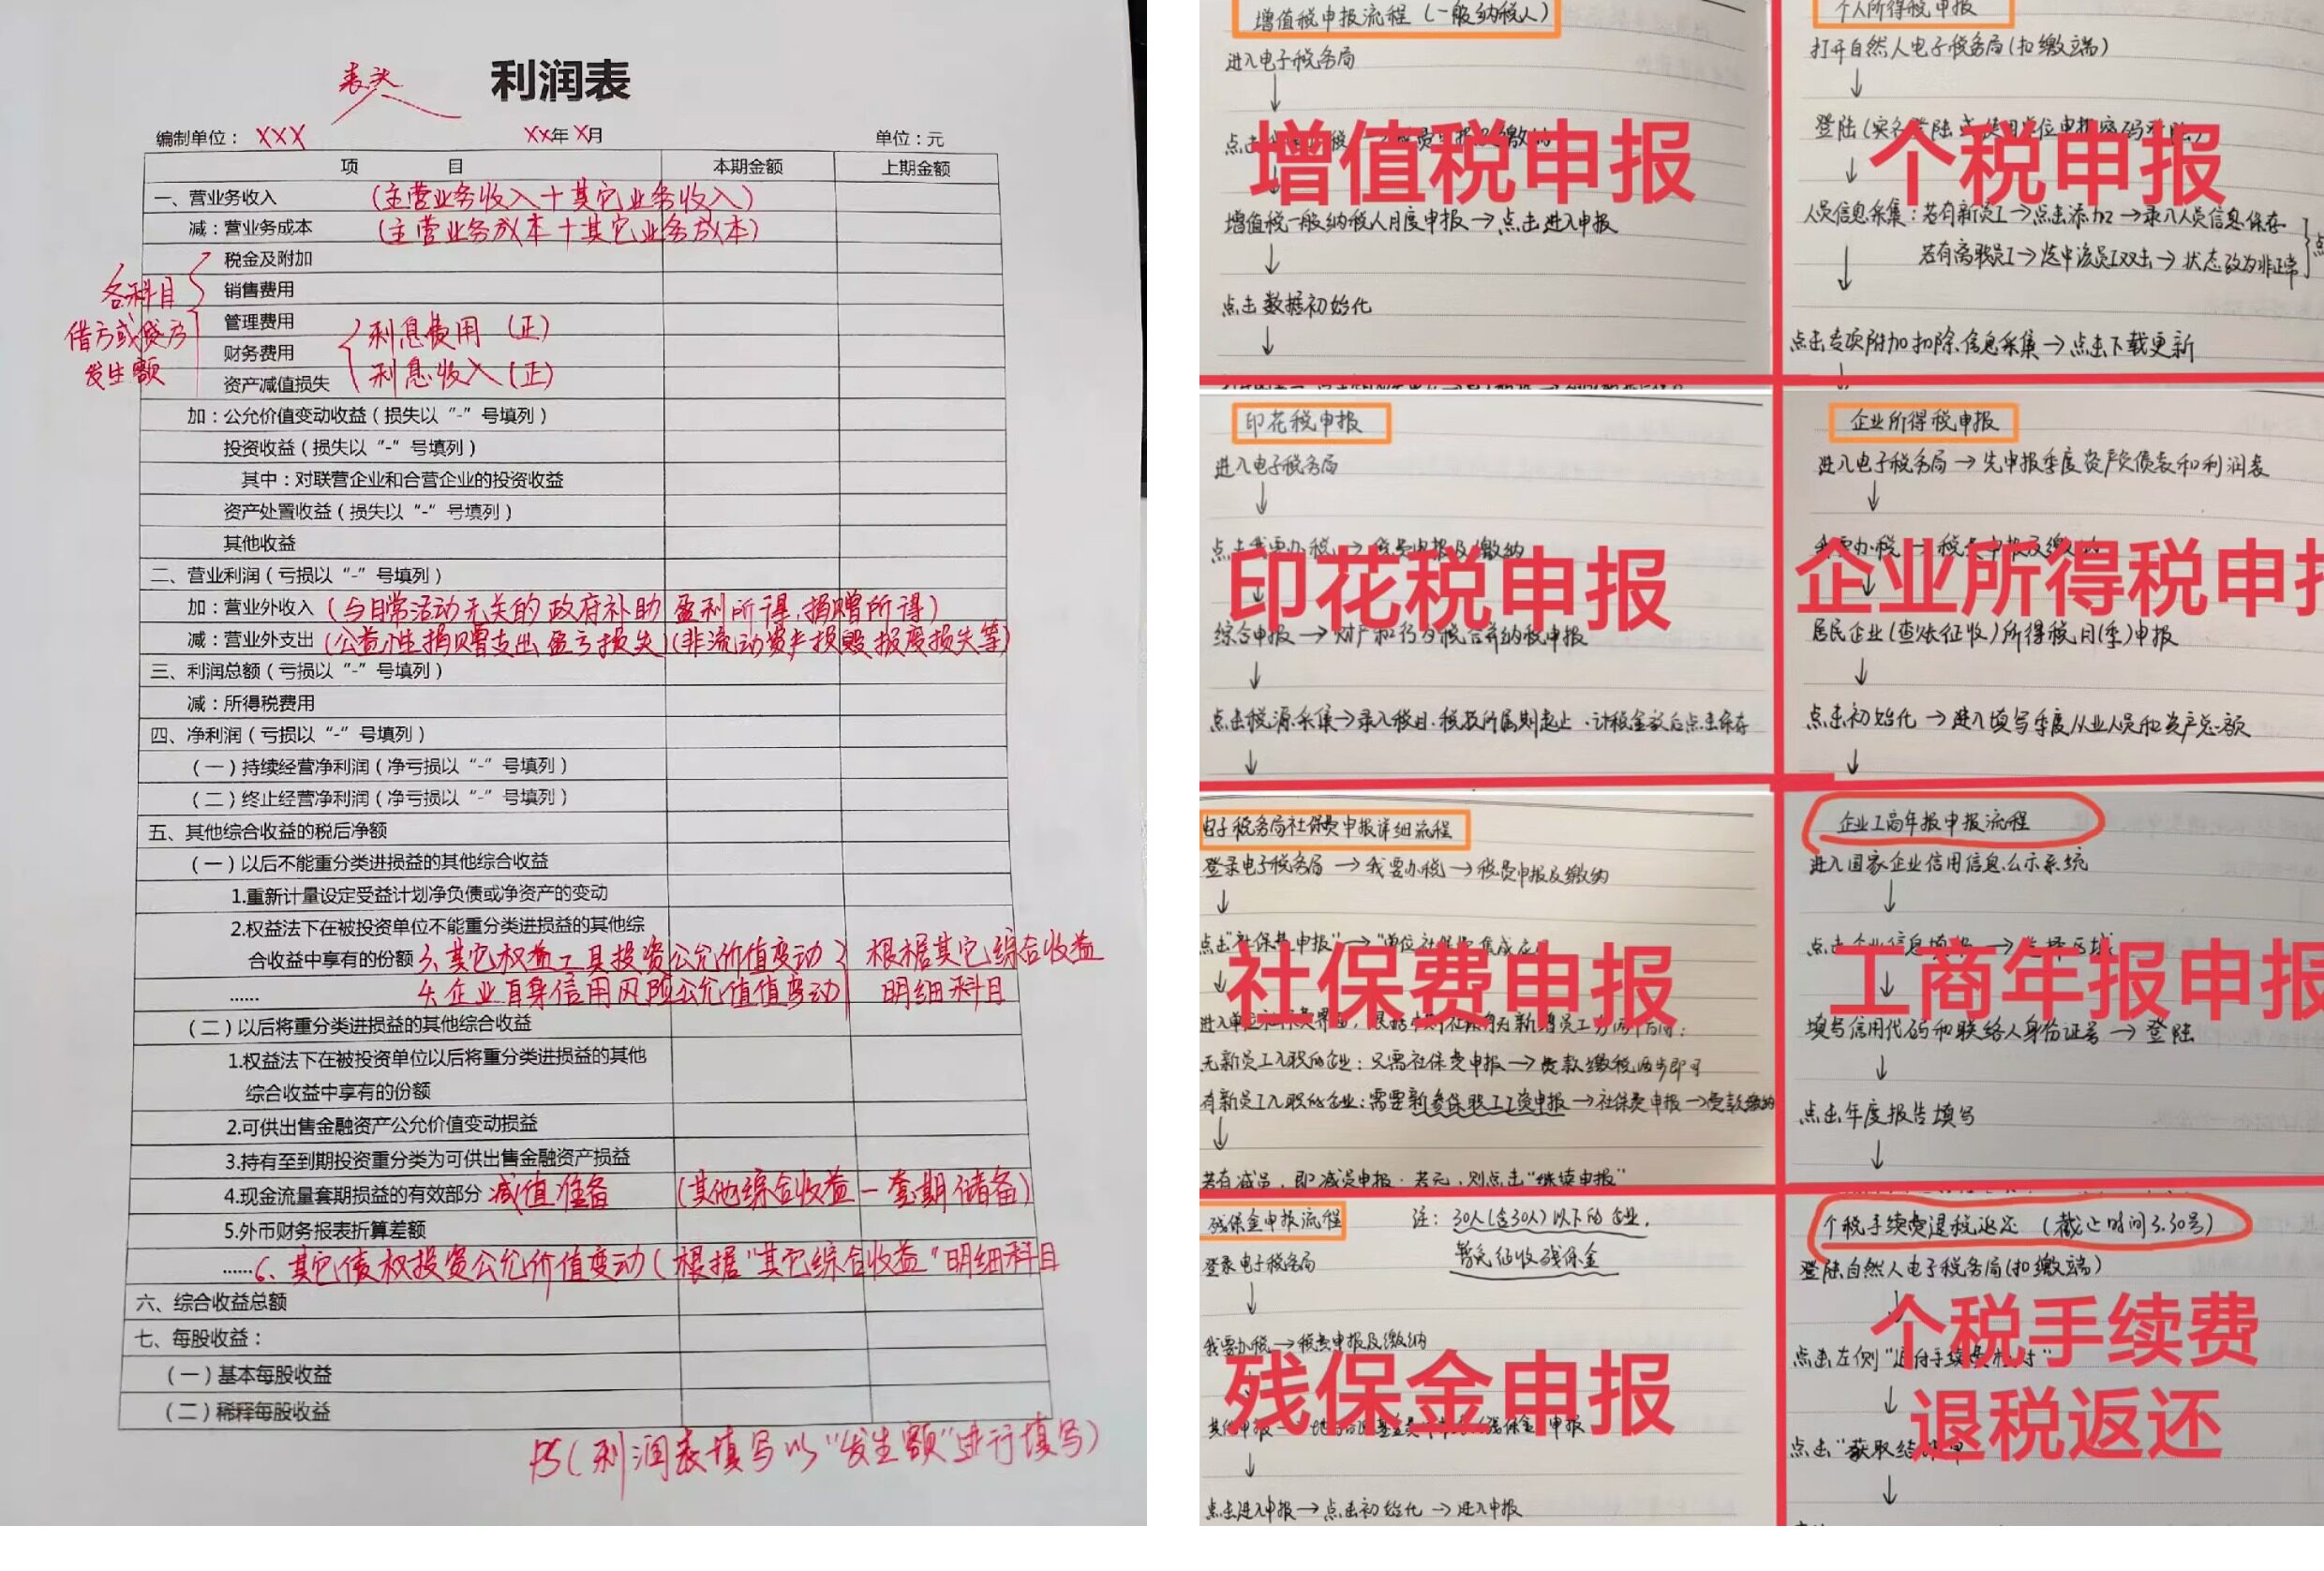 表头
利润表
编制单位： XXX XX年 X月 单位：元
项 目 本期金额 上期金额
一、营业务收入 （主营业务收入＋其它业务收入）
减：营业务成本 （主营业务成本＋其它业务成本）
税金及附加
销售费用
各科目
管理费用
利息费用（正）
借方或贷方
财务费用
利息收入（正）
发生额
资产减值损失
加：公允价值变动收益（损失以“-”号填列）
投资收益（损失以“-”号填列）
其中：对联营企业和合营企业的投资收益
资产处置收益（损失以“-”号填列）
其他收益
二、营业利润（亏损以“-”号填列）
加：营业外收入（与日常活动无关的政府补助 盈利所得，捐赠所得）
减：营业外支出（公益性捐赠支出 盈亏损失）（非流动资产损毁报废损失等）
三、利润总额（亏损以“-”号填列）
减：所得税费用
四、净利润（亏损以“-”号填列）
（一）持续经营净利润（净亏损以“-”号填列）
（二）终止经营净利润（净亏损以“-”号填列）
五、其他综合收益的税后净额
（一）以后不能重分类进损益的其他综合收益
1.重新计量设定受益计划净负债或净资产的变动
2.权益法下在被投资单位不能重分类进损益的其他综
合收益中享有的份额 3、其它权益工具投资公允价值变动 根据其它综合收益
...... 4、企业自身信用风险公允值值变动 明细科目
（二）以后将重分类进损益的其他综合收益
1.权益法下在被投资单位以后将重分类进损益的其他
综合收益中享有的份额
2.可供出售金融资产公允价值变动损益
3.持有至到期投资重分类为可供出售金融资产损益
4.现金流量套期损益的有效部分 减值准备 （其他综合收益－套期储备）
5.外币财务报表折算差额
......6、其它债权投资公允价值变动（根据“其它综合收益”明细科目
六、综合收益总额
七、每股收益：
（一）基本每股收益
（二）稀释每股收益
PS（利润表填写以“发生额”进行填写）
增值税申报流程（一般纳税人）
进入电子税务局
↓
点击
增值税申报
增值税一般纳税人月度申报→点击进入申报
↓
点击数据初始化
↓
个人所得税申报
打开自然人电子税务局（扣缴端）
↓
登陆（实名登陆
个税申报
↓
人员信息采集：若有新员工→点击添加→录入人员信息保存
若有离职员工→选中该员工双击→状态改为非正常
↓
点击专项附加扣除信息采集→点击下载更新
↓
印花税申报
进入电子税务局
↓
点击我要办税→税费申报及缴纳
印花税申报
综合申报→财产和行为税合并纳税申报
↓
点击税源采集→录入税目、税款所属期起止、计税金额后点击保存
↓
企业所得税申报
进入电子税务局→先申报季度资产负债表和利润表
↓
我要办税→税费申报及缴纳
企业所得税申报
居民企业（查账征收）所得税月（季）申报
↓
点击初始化→进入填写季度从业人员和资产总额
↓
电子税务局社保费申报详细流程
登录电子税务局→我要办税→税费申报及缴纳
↓
点击“社保费申报”→
社保费申报
↓
无新员工入职的企业：只需社保费申报→费款缴税两步即可
有新员工入职的企业：需要新参保职工工资申报→社保费申报→费款缴纳
↓
若有减员，即减员申报，若无，则点击“继续申报”
企业工商年报申报流程
进入国家企业信用信息公示系统
↓
点击企业信息填报→选择区域
工商年报申报
↓
填写信用代码和联络人身份证号→登陆
↓
点击年度报告填写
↓
残保金申报流程 注：30人（含30人）以下的企业，
暂免征收残保金
登录电子税务局
↓
我要办税→税费申报及缴纳
残保金申报
↓
点击进入申报→点击初始化→进入申报
个税手续费退税返还（截止时间3.30号）
登陆自然人电子税务局（扣缴端）
个税手续费
点击左侧
↓
退税返还
点击“获取
↓